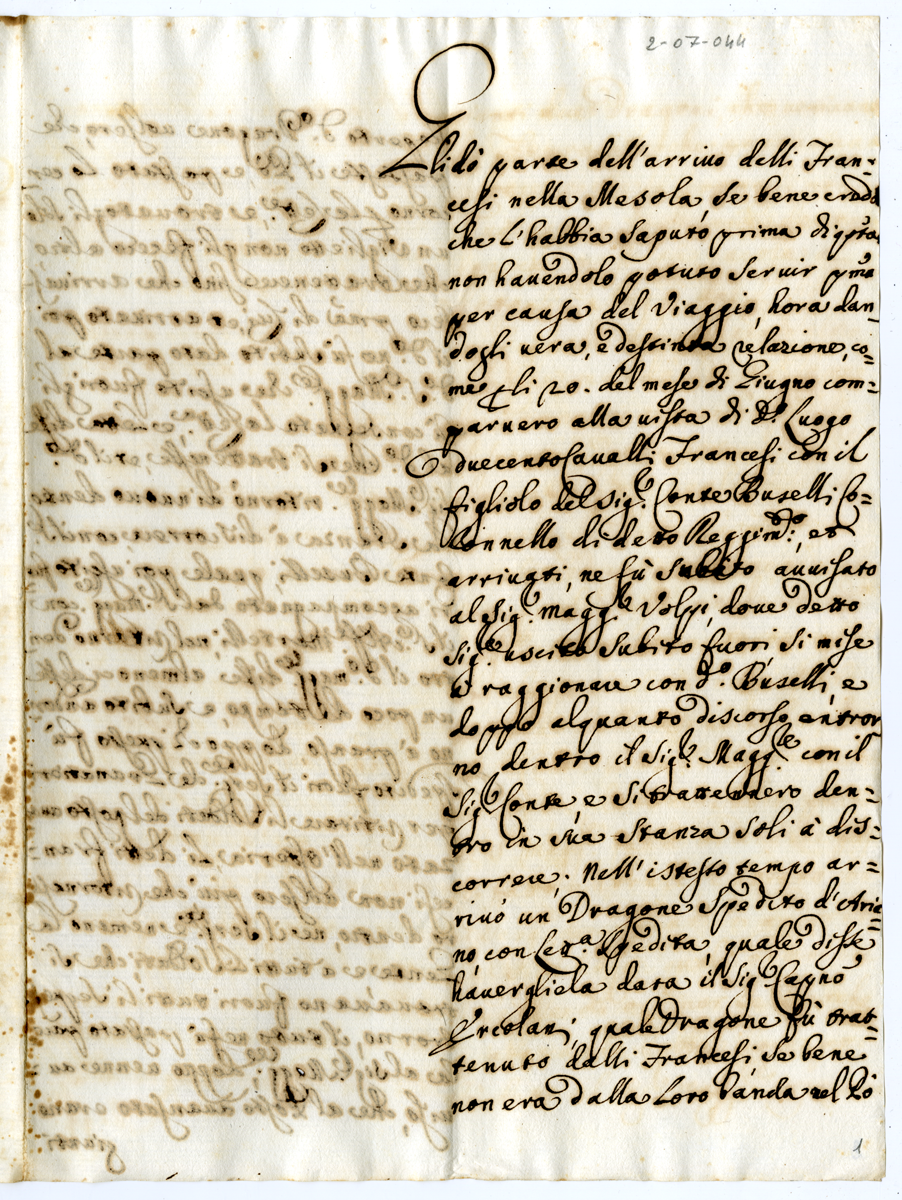 2-07-044
Gli dò parte dell'arriuo delli Fran=
cesi nella Mesola, se bene credo
che l'habbia saputo prima di q.sta
non hauendolo potuto seruir p.ma
per causa del Viaggio, hora dan=
dogli uera, e destinta relazione, co=
me gli 20. del mese di Giugno com=
paruero alla uista di d.o Luogo
duecento Caualli Francesi con il
figliolo del Sig.r Conte Buselli Co=
lonnello di detto Reggim.to, et
arriuati, ne fù subito auuisato
al Sig.r Magg.re Volpi, doue detto
Sig.re uscito subito fuori si mise
à raggionare con d.o Buselli, e
doppo alquanto discorso entror
no dentro il Sig.r Magg.re con il
Sig.r Conte, e si trattennero den=
tro in sua stanza soli à dis=
correre. Nell'istesso tempo ar=
riuò un Dragone spedito d'Aria=
no, con let.ra spedita, quale disse
hauergliela data il Sig.r Cap.no
Ercolani, quale Dragone fù trat=
tenuto dalli Francesi se bene
non era dalla loro banda del Pò
1